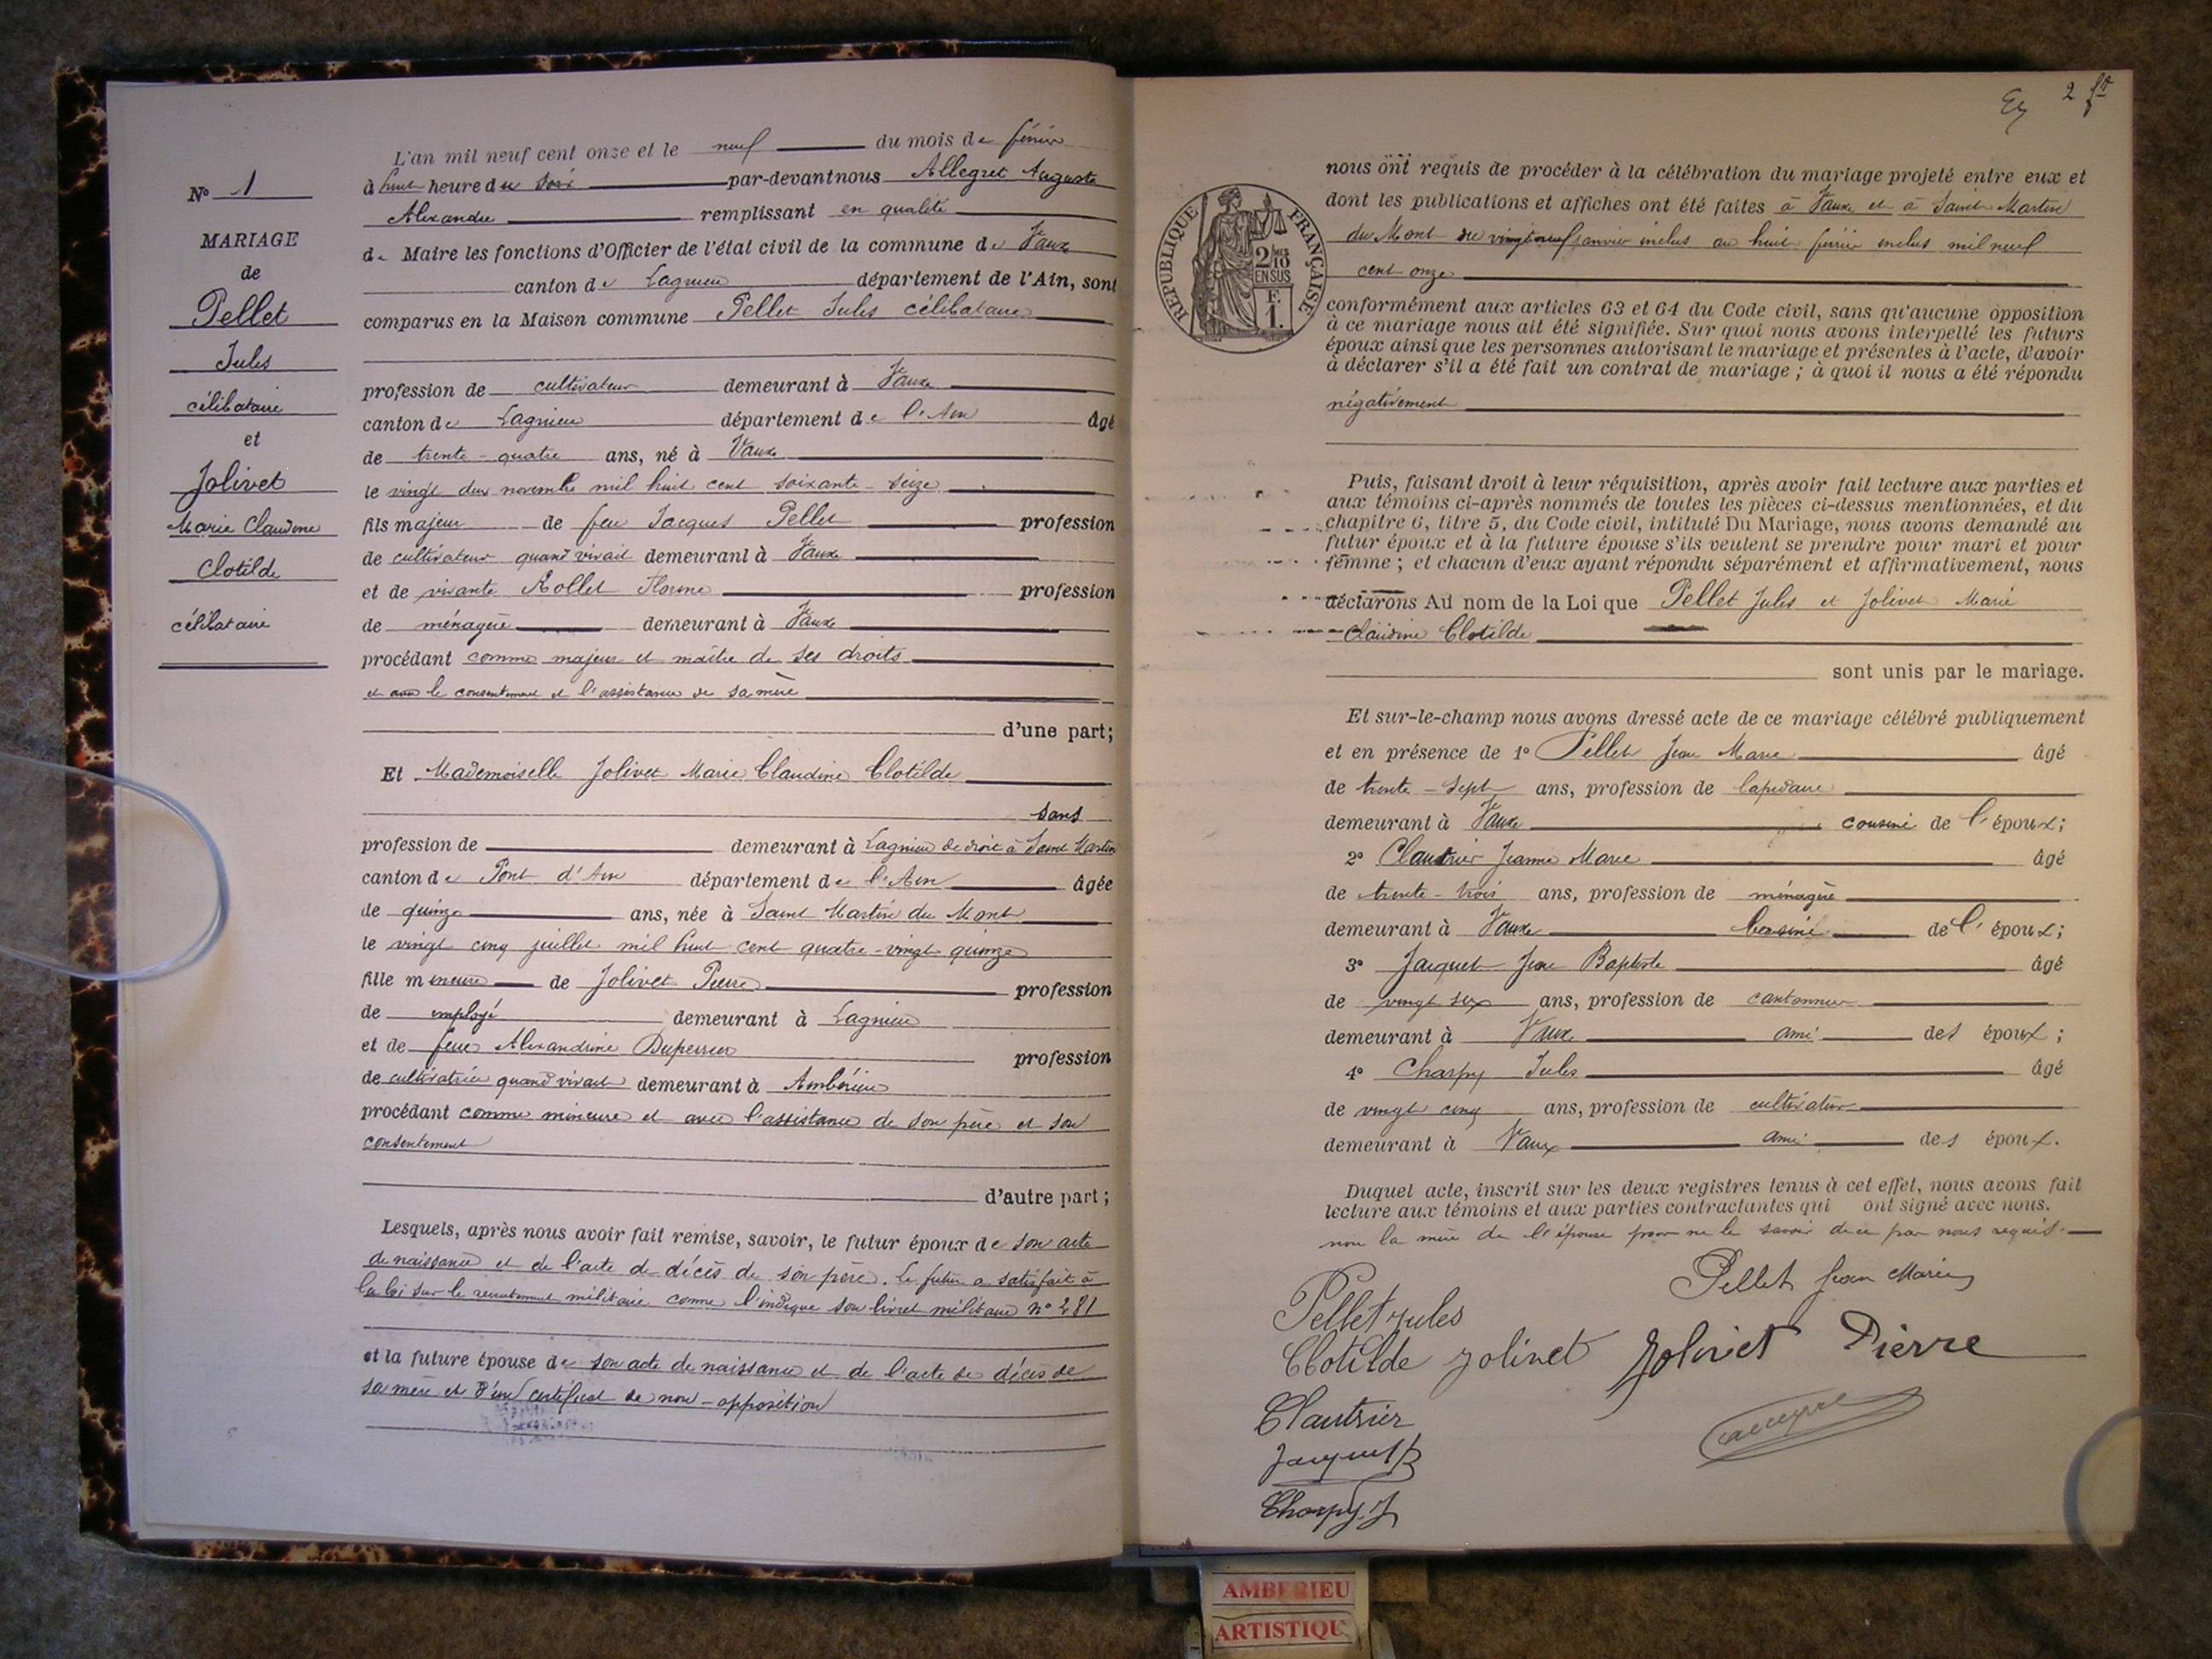 N° 1
MARIAGE
de
Pellet
Jules
célibataire
et
Jolivet
Marie Claudine
Clotilde
célibataire
L'an mil neuf cent onze et le neuf du mois de février
à huit heure du soir par-devant nous Allegret Auguste
Alexandre remplissant en qualité
de Maire les fonctions d'Officier de l'état civil de la commune de Vaux
canton de Lagnieu département de l'Ain, sont
comparus en la Maison commune Pellet Jules célibataire
profession de cultivateur demeurant à Vaux
canton de Lagnieu département de l'Ain âgé
de trente-quatre ans, né à Vaux
le vingt deux novembre mil huit cent soixante-seize
fils majeur de feu Jacques Pellet profession
de cultivateur quand vivait demeurant à Vaux
et de vivante Rollet profession
de ménagère demeurant à Vaux
procédant comme majeur et maître de ses droits
et avec le consentement et l'assistance de sa mère
d'une part;
Et Mademoiselle Jolivet Marie Claudine Clotilde
sans
profession de demeurant à Lagnieu de droit à Saint Martin
canton de Pont d'Ain département de l'Ain âgée
de quinze ans, née à Saint Martin du Mont
le vingt cinq juillet mil huit cent quatre-vingt quinze
fille mineure de Jolivet Pierre profession
de employé demeurant à Lagnieu
et de feue Alexandrine Duperrier profession
de cultivatrice quand vivait demeurant à Ambérieu
procédant comme mineure et avec l'assistance de son père et son
consentement
d'autre part;
Lesquels, après nous avoir fait remise, savoir, le futur époux de son acte
de naissance et de l'acte de décès de son père. Le futur a satisfait à
la loi sur le recrutement militaire comme l'indique son livret militaire n° 281
et la future épouse de son acte de naissance et de l'acte de décès de
sa mère et d'un certificat de non-opposition
2
RÉPUBLIQUE FRANÇAISE
2/10
EN SUS
F.
1.
nous ont requis de procéder à la célébration du mariage projeté entre eux et
dont les publications et affiches ont été faites à Vaux et à Saint Martin
du Mont du vingt neuf janvier inclus au huit février inclus mil neuf
cent onze
conformément aux articles 63 et 64 du Code civil, sans qu'aucune opposition
à ce mariage nous ait été signifiée. Sur quoi nous avons interpellé les futurs
époux ainsi que les personnes autorisant le mariage et présentes à l'acte, d'avoir
à déclarer s'il a été fait un contrat de mariage; à quoi il nous a été répondu
négativement
Puis, faisant droit à leur réquisition, après avoir fait lecture aux parties et
aux témoins ci-après nommés de toutes les pièces ci-dessus mentionnées, et du
chapitre 6, titre 5, du Code civil, intitulé Du Mariage, nous avons demandé au
futur époux et à la future épouse s'ils veulent se prendre pour mari et pour
femme; et chacun d'eux ayant répondu séparément et affirmativement, nous
déclarons Au nom de la Loi que Pellet Jules et Jolivet Marie
Claudine Clotilde
sont unis par le mariage.
Et sur-le-champ nous avons dressé acte de ce mariage célébré publiquement
et en présence de 1° Pellet Jean Marie âgé
de trente-sept ans, profession de lapidaire
demeurant à Vaux cousin de l'époux;
2° Clautrier Jeanne Marie âgé
de trente-trois ans, profession de ménagère
demeurant à Vaux cousine de l'époux;
3° Jacquet Jean Baptiste âgé
de vingt six ans, profession de cantonnier
demeurant à Vaux ami des époux;
4° Charpy Jules âgé
de vingt cinq ans, profession de cultivateur
demeurant à Vaux ami des époux.
Duquel acte, inscrit sur les deux registres tenus à cet effet, nous avons fait
lecture aux témoins et aux parties contractantes qui ont signé avec nous.
non la mère de l'époux pour ne le savoir de ce par nous requis.
Pellet Jean Marie
Pellet Jules
Clotilde Jolivet Jolivet Pierre
Clautrier
Jacquet B
Charpy. J
AMBERIEU
ARTISTIQU